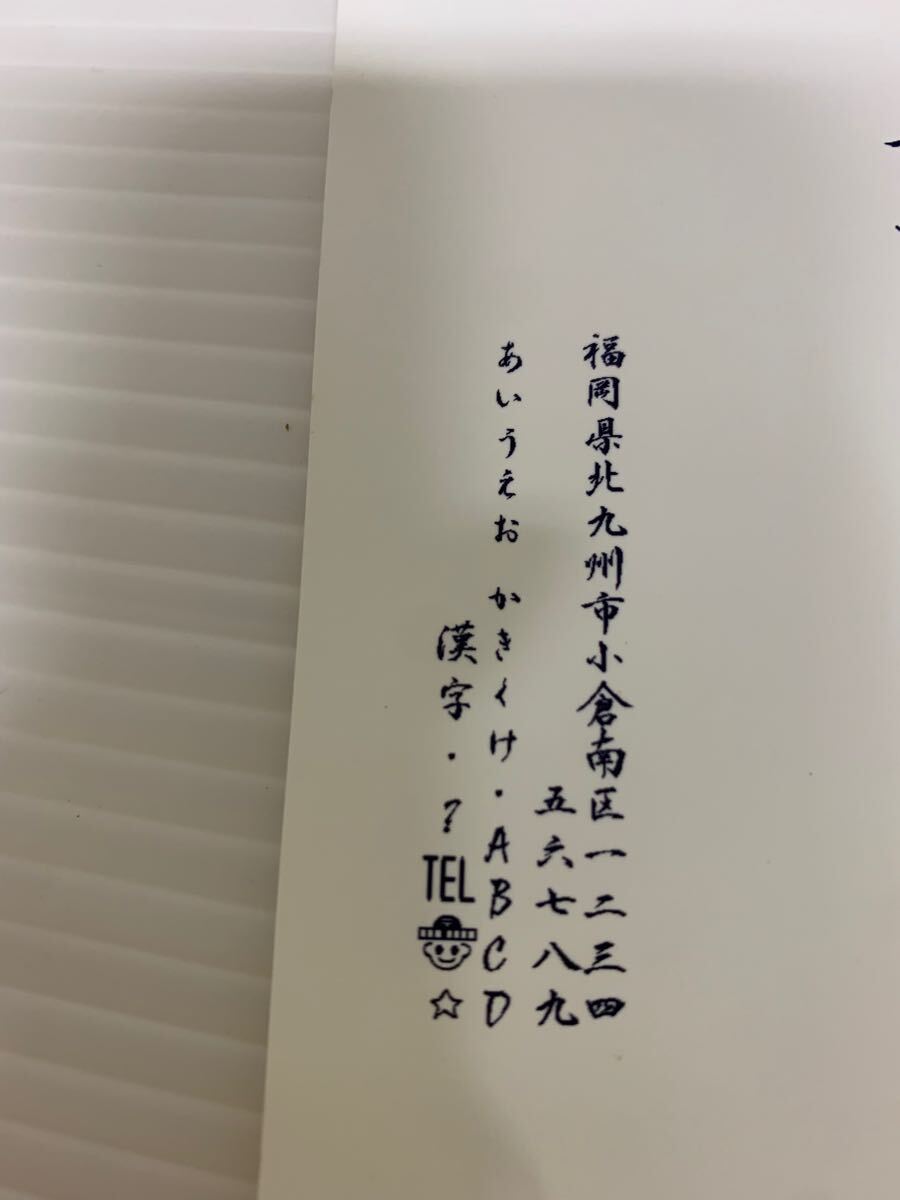 福岡県北九州市小倉南区一二三四
五六七八九
あいうえお かきくけ・ABCD
漢字・?TEL☆